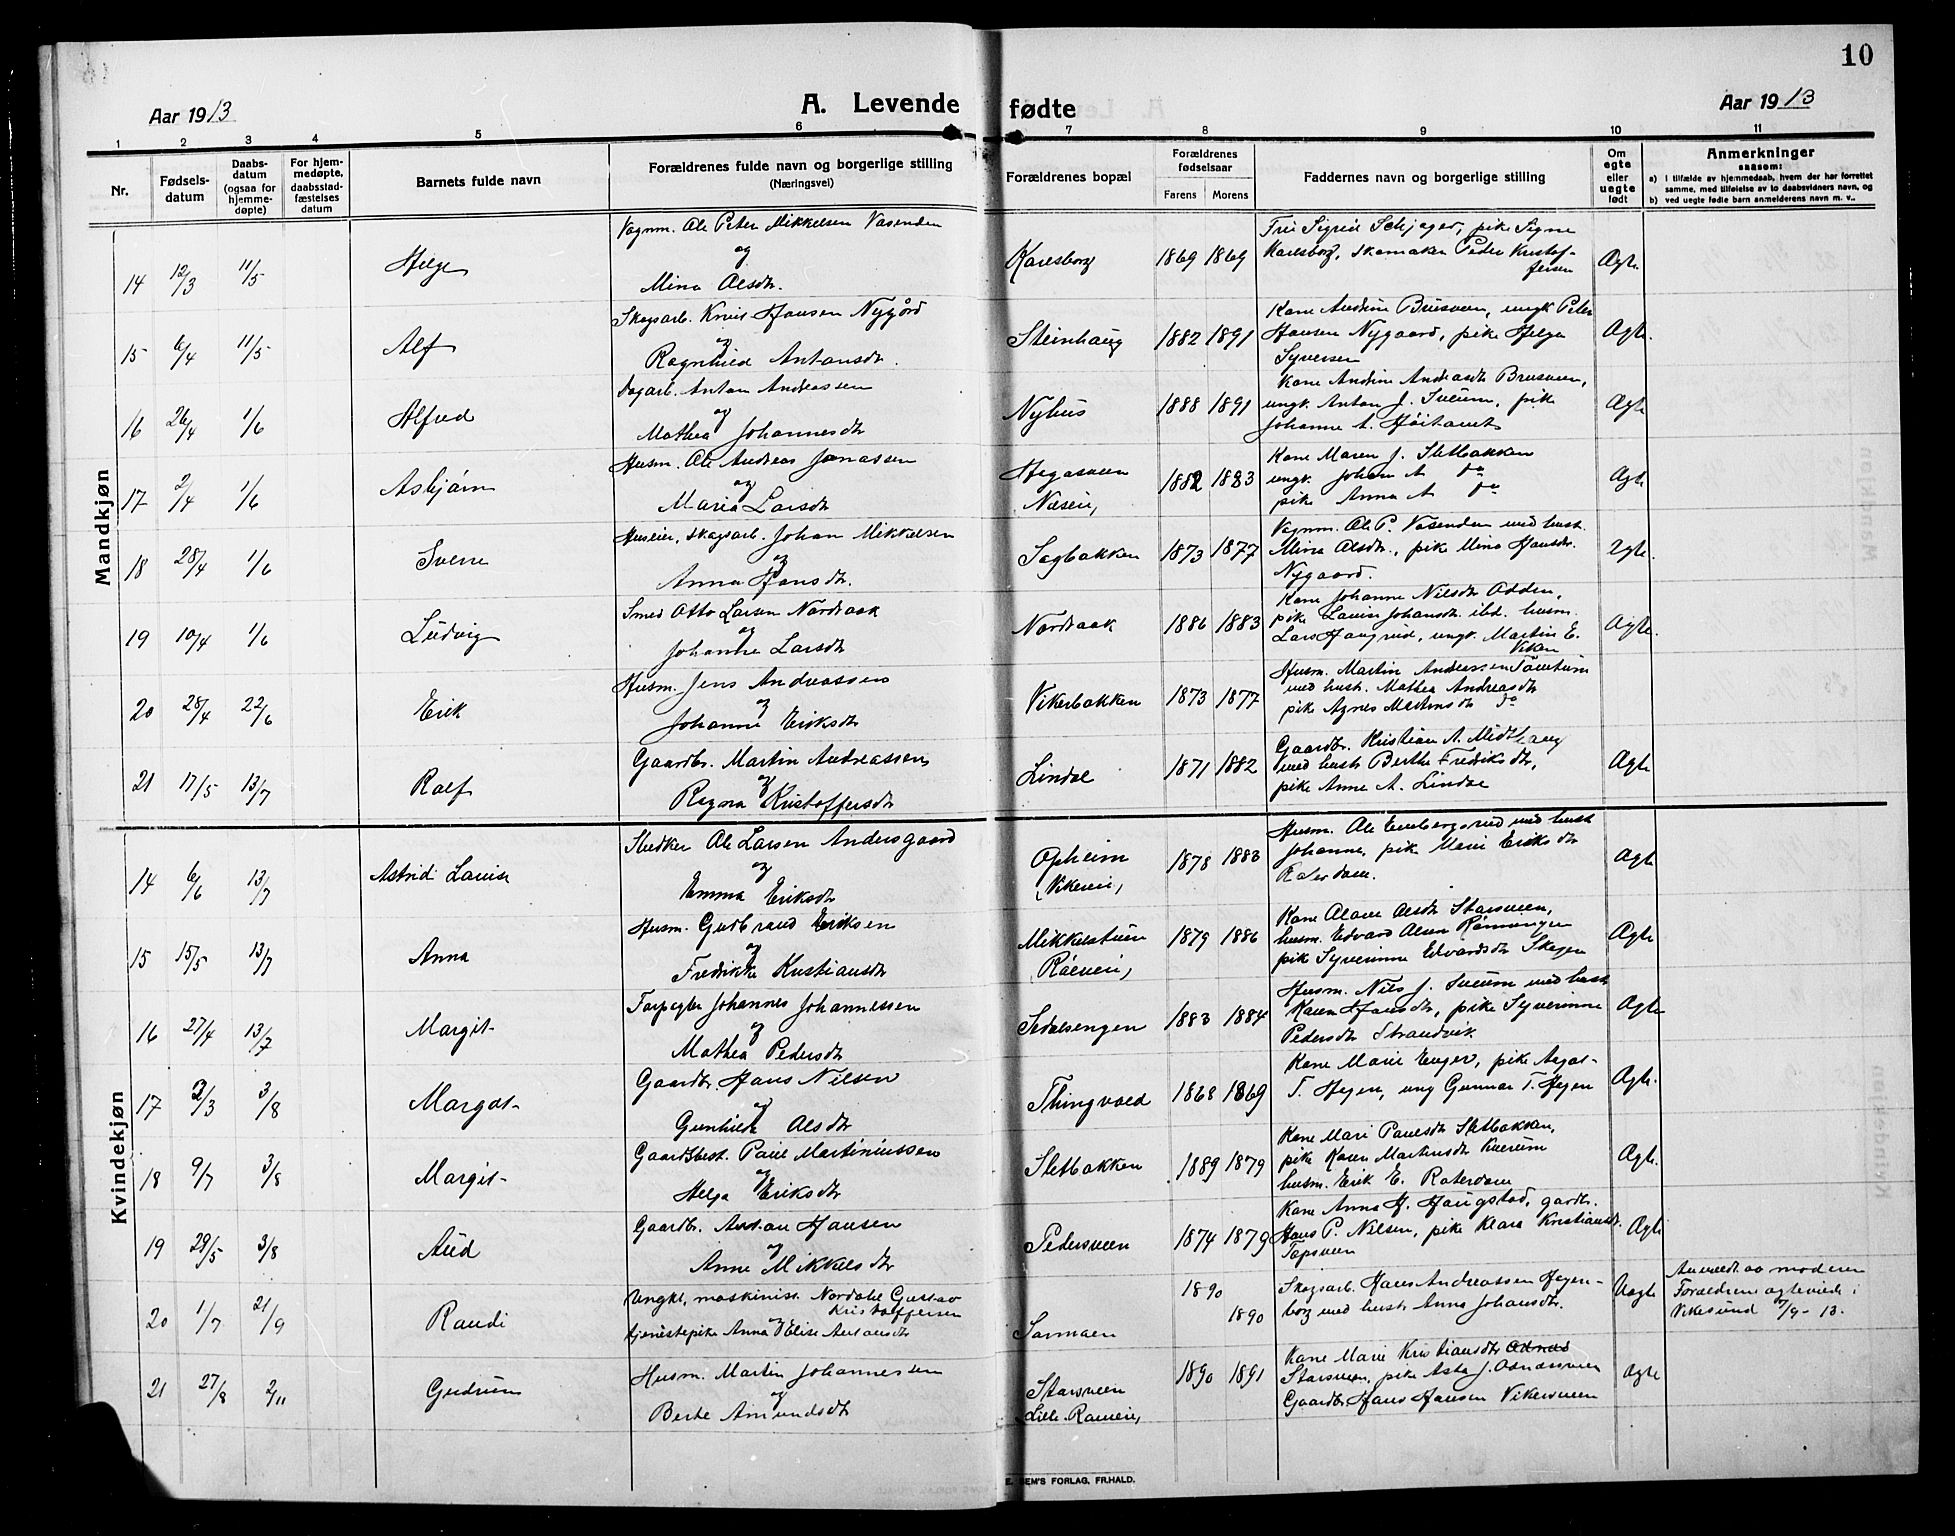 10
Aar 1913
A. Levende fødte
Aar 1913
1 2 3 4 5 6 7 8 9 10 11
Nr.
Fødsels-
datum
Daabs-
datum
(ogsaa for
hjemme-
døpte)
For hjem-
medøpte,
daabsstad-
fæstelses
datum
Barnets fulde navn
Forældrenes fulde navn og borgerlige stilling
(Næringsvei)
Forældrenes bopæl
Forældrenes
fødselsaar
Farens Morens
Faddernes navn og borgerlige stilling
Om
egte
eller
uegte
født
Anmerkninger
saasom:
a) i tilfælde av hjemmedaab, hvem der har forrettet
samme, med tilføielse av to daabsvidners navn, og
b) ved uegte fødte barn anmelderens navn m. v..
Mandkjøn
14 12/3 11/5 Helge
Vognm. Ole Peter Mikkelsen Vasenden
og
Mina Olsdtr.
Karlsborg 1869 1869
Sigrid Schjager, pike Signe
Karlsborg, skomaker Peder Kristof-
fersen
Ægte
15 6/4 11/5 Alf
Skogsarb. Knut Hansen Nygård
og
Ragnhild Antonsdtr.
Steinhaug 1882 1891
Kone Andrine Brusveen, ungk. Peter
Hansen Nygaard, pike Helga
Syversen
Ægte.
16 26/4 1/6 Alfred
Dagarb. Anton Andreassen
og
Mathea Johannesdtr
Nyhus 1888 1891
Kone Andrine Andreasdtr Brusveen,
ungk. Anton J. Sveum, pike
Johanne A.
Ægte
17 2/4 1/6 Asbjørn
Husm. Ole Andreas Jonassen
og
Maria Larsdtr
Hegasveen
Næseie, 1882 1883
Kone Maren J. Sletbakken
ungk. Johan A do
pike Anna A do
Ægte
18 28/4 1/6 Sverre
Huseier, skogsarb. Johan Mikkelsen
og
Anna Hansdtr.
Sagbakken 1873 1877
Vognm. Ole P. Vasenden med hust.
Mina Olsdtr., pike Mina Hansdtr.
Nygaard.
Ægte.
19 10/4 1/6 Ludvig
Smed Otto Larsen Nordraak
og
Johanne Larsdtr
Nordraak 1886 1883
Kone Johanne Nilsdtr Odden,
pike Lovise Johansdtr ibd. husm.
Lars Haugrud, ungk. Martin E.
Viken
Ægte.
20 28/4 22/6 Erik
Husm. Jens Andreassen
og
Johanne Eriksdtr
Vikerbakken 1873 1877
Husm. Martin Andersen
med hust. Mathea Andreasdtr
pike Agnes Martinsdtr do
21 17/5 13/7 Rolf
Gaardbr. Martin Andreassen
og
Ragna Kristoffersdtr
Lindal 1871 1882
Gaardbr. Kristian A. Midthaug
med hust. Berthe Fredriksdtr,
pike Anne A. Lindal
Ægte
Kvindekjøn
14 6/6 13/7 Astrid Louise
Snedker Ole Larsen Andersgaard
og
Emma Eriksdtr
Opheim
(Vikereie) 1878 1883
Husm. Ole med hust
Johanne, pike Marie Eriksdtr
Roterdam.
Ægte
15 15/5 13/7 Anna
Husm. Gudbrand Eriksen
og
Fredrikke Kristiansdtr
Mikkelstuen 1879 1886
Kone Olava Olsdtr Storsveen,
husm. Edvard Olsen Rønningen
pik Syverinne Edvardsdtr Skogen
Ægte
16 27/4 13/7 Margit
Torpegler Johannes Johannessen
og
Mathea Pedersdtr
Sedalsengen 1883 1884
Husm. Nils J. Sveum med hust
Karen Hansdtr, pike Syverinne
Pedersdtr Strandvik
Ægte
17 2/3 3/8 Margot
Gaardbr. Hans Nilsen
og
Gunhild Olsdtr
Thingvold 1868 1869
Kone Marie Enger, pike Aagot
T. Hegen, ung Gunnar T. Hegen
Ægte.
18 9/7 3/8 Margit
Gaardsbest. Paul Martiniussen
og
Helga Eriksdtr
Sletbakken 1889 1879
Kone Mari Paulsdtr Sletbakken,
pike Karen Martinsdtr
husm. Erik E. Roterdam
Ægte.
19 29/5 3/8 Aud
Gaardbr. Anton Hansen
og
Anne Mikkelsdtr
Pedersveen 1874 1879
Kone Anna H. Haugstad, gardbr.
Hans P. Nilsen, pike Klara Kristiansdtr.
Topsveen
Ægte
20 1/7 21/9 Randi
Ungk., maskinist Nordahl Gustav
Kristoffersen
og
tjenestepike Anna Elise Antonsdtr
Sonmoen 1890
1890
Skogsarb. Hans Andreassen Hegen-
borg med hust. Anna Johansdtr.
Uægte
Anmeldt av moderen
Forældrene egteviede i
Vikesund /9-13.
21 27/8 2/11 Gudrun
Husm. Martin Johannessen
og
Berte Amundsdtr
Storsveen
1890 1891
Kone Marie Kristiansdtr
Storsveen, pike Asta J. Odnesveen
Gaardbr Hans Hansen Vikersveen
Ægte
E. SEM'S FORLAG, FR.HALD.